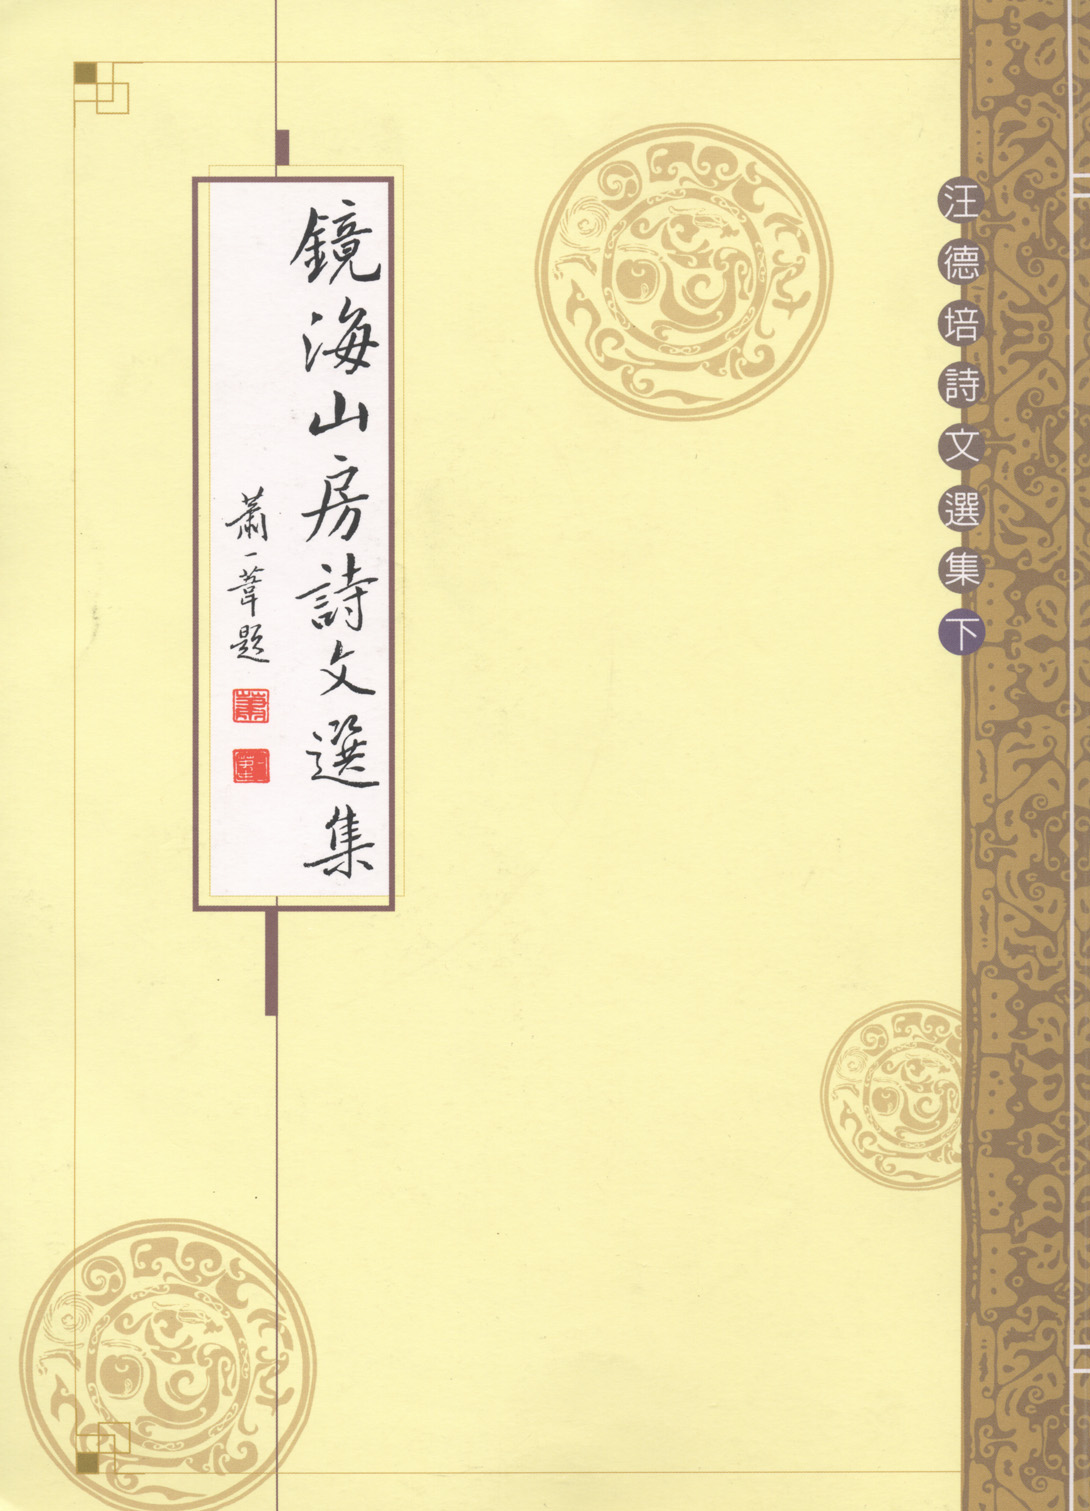 汪德培詩文選集下
鏡海山房詩文選集
蕭一葦題